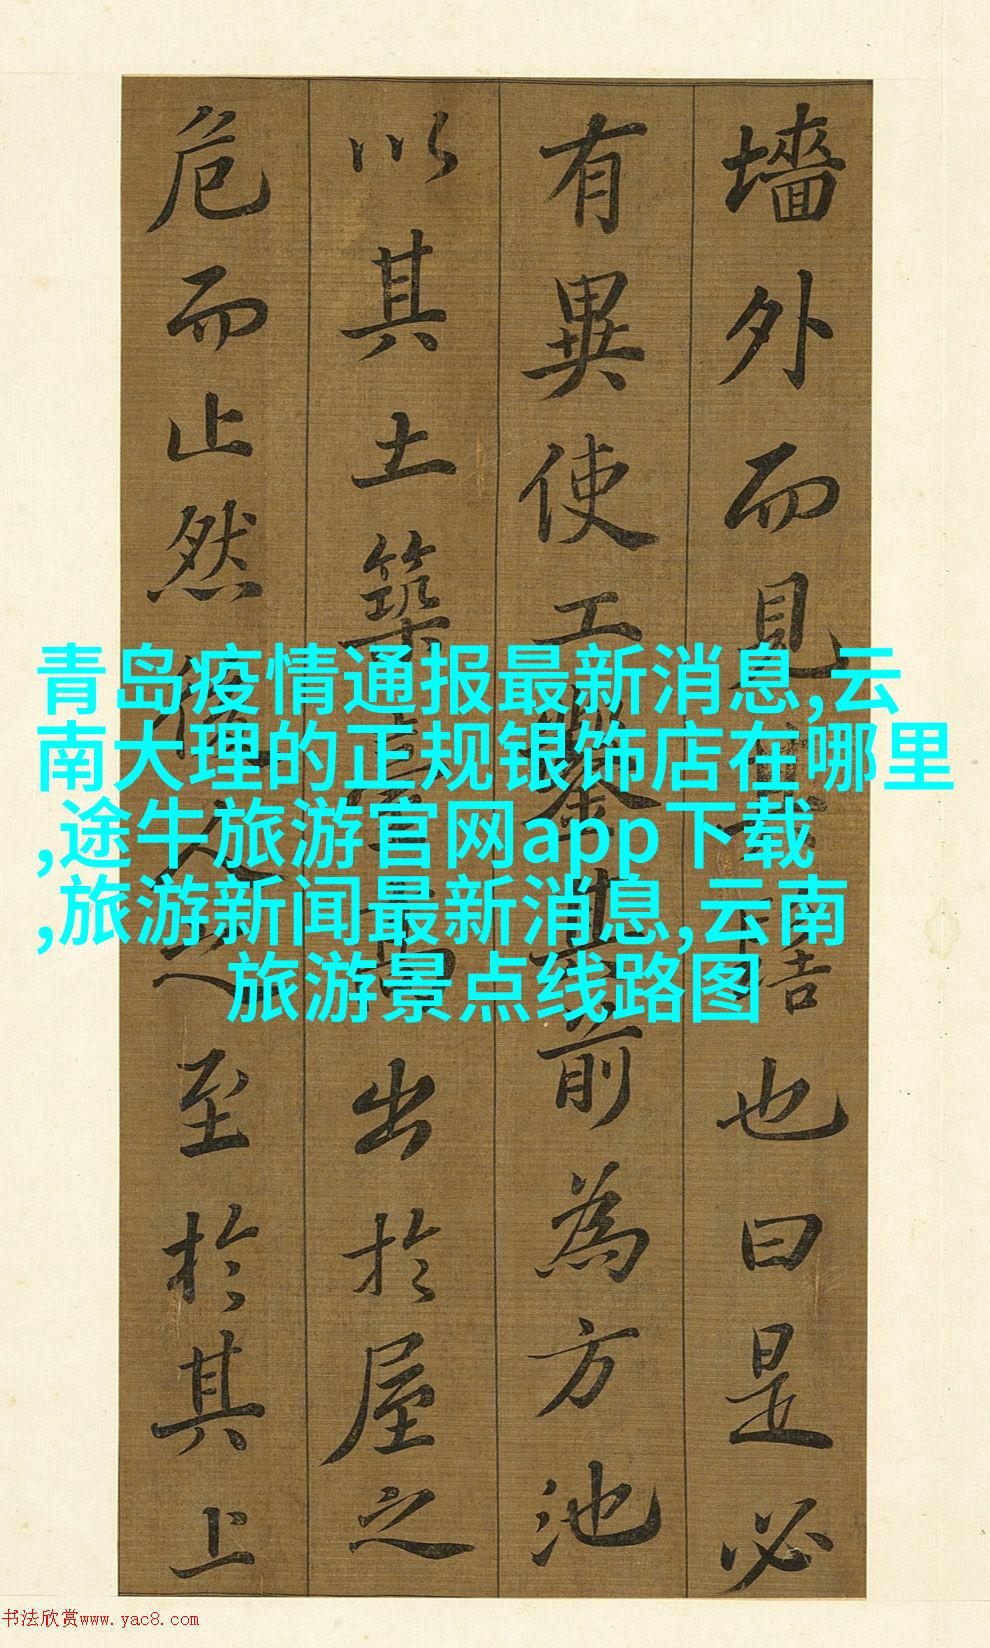 墻外而見其髻也曰是必
有異使工鑿其前為方池
以其土築臺高出於屋之
危而止然後人之至於其上
青岛疫情通报最新消息,云
南大理的正规银饰店在哪里
,途牛旅游官网app下载
,旅游新闻最新消息,云南
旅游景点线路图
书法欣赏www.yac8.com